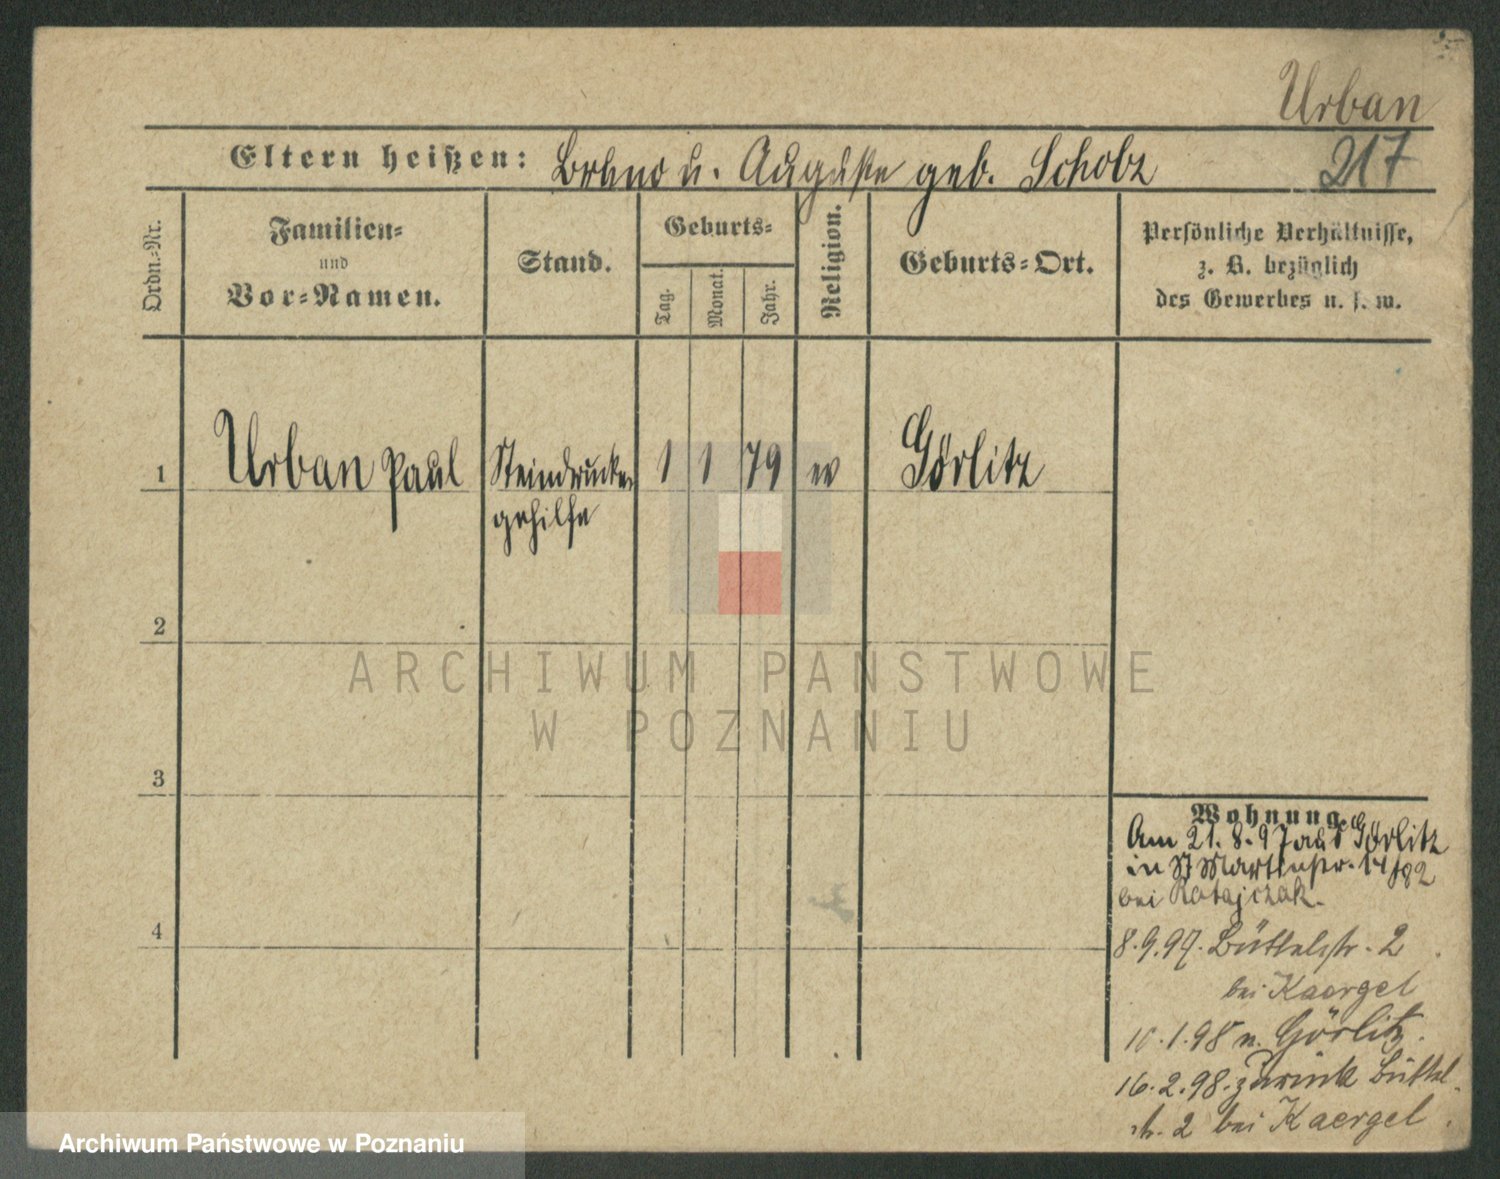 Urban
Eltern heißen: Bruno u. Auguste geb. Scholz 217
Ordn.-Nr.
Familien-
und
Vor-Namen.
Stand.
Geburts-
Tag.
Monat.
Jahr.
Religion.
Geburts-Ort.
Persönliche Verhältnisse,
z. B. bezüglich
des Gewerbes u. s. w.
1 Urban Paul Steindrucker 1 1 79 ev Görlitz
gehilfe
2
3
4
Wohnung.
Am 21.8.97 aus Görlitz
in St Martinstr. 14/82
bei Ratajczak.
8.9.97. Büttelstr. 2
bei Kaergel
10.1.98 n. Görlitz.
16.2.98. zurück Büttel
str. 2 bei Kaergel.
ARCHIWUM PAŃSTWOWE
W POZNANIU
Archiwum Państwowe w Poznaniu